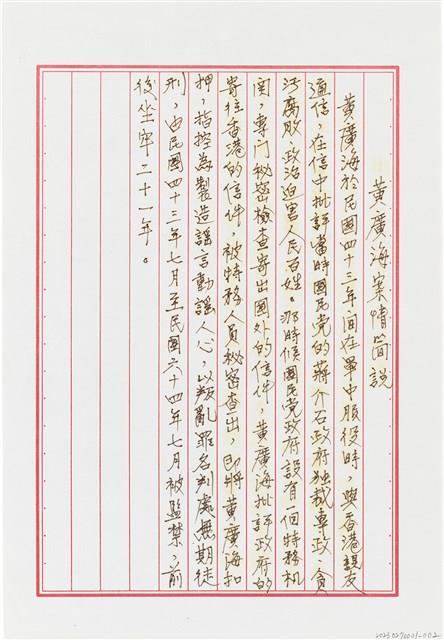 黃廣海案情簡說
黃廣海於民國四十三年間在軍中服役時，與香港親友
通信，在信中批評當時國民党的蔣介石政府独裁專政、貪
污腐敗、政治迫害人民百姓。那時候國民党政府設有一個特務机
関，專门秘密檢查寄出國外的信件，黃廣海批評政府的
寄往香港的信件，被特務人員秘密查出，即將黃廣海扣
押，指控為製造謠言動謠人心，以叛亂罪名判處無期徒
刑，由民國四十三年七月至民國六十四年七月被監禁，前
後坐牢二十一年。
20230270001-002